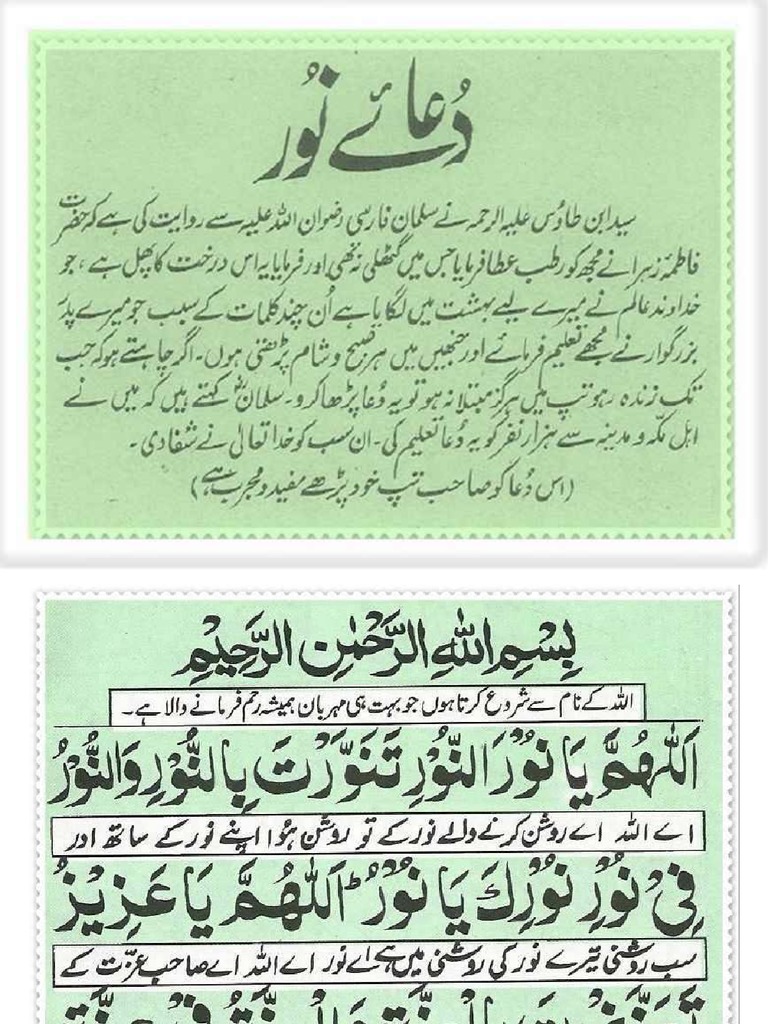 دُعائے نُور
سید ابن طاوٗس علیہ الرحمہ نے سلمان فارسی رضوان اللہ علیہ سے روایت کی ہے کہ حضرت
فاطمہ زہرا نے مجھ کو رطب عطا فرمایا جس میں گٹھلی نہ تھی اور فرمایا یہ اس درخت کا پھل ہے ، جو
خداوند عالم نے میرے لیے بہشت میں لگایا ہے اُن چند کلمات کے سبب جو میرے پدر
بزرگوار نے مجھے تعلیم فرمائے اور جنھیں میں ہر صبح و شام پڑھتی ہوں۔ اگر چاہتے ہو کہ جب
تک زندہ رہو تپ میں ہرگز مبتلا نہ ہو تو یہ دُعا پڑھا کرو۔ سلمانؓ کہتے ہیں کہ میں نے
اہل مکہ و مدینہ سے ہزار نفر کو یہ دُعا تعلیم کی۔ ان سب کو خدا تعالیٰ نے شفا دی۔
(اس دُعا کو صاحب تپ خود پڑھے مفید و مجرب ہے)
بِسْمِ اللّٰهِ الرَّحْمٰنِ الرَّحِيْمِ
اللہ کے نام سے شروع کرتا ہوں جو بہت ہی مہربان ہمیشہ رحم فرمانے والا ہے۔
اَللّٰهُمَّ يَا نُوْرَ النُّوْرِ تَنَوَّرْتَ بِالنُّوْرِ وَالنُّوْرُ
اے اللہ اے روشن کرنے والے نور کے تو روشن ہُوا اپنے نور کے ساتھ اور
فِيْ نُوْرِ نُوْرِكَ يَا نُوْرُ ؕ اَللّٰهُمَّ يَا عَزِيْزُ
سب روشنی تیرے نور کی روشنی میں ہے اے نور اے اللہ اے صاحب عزّت کے